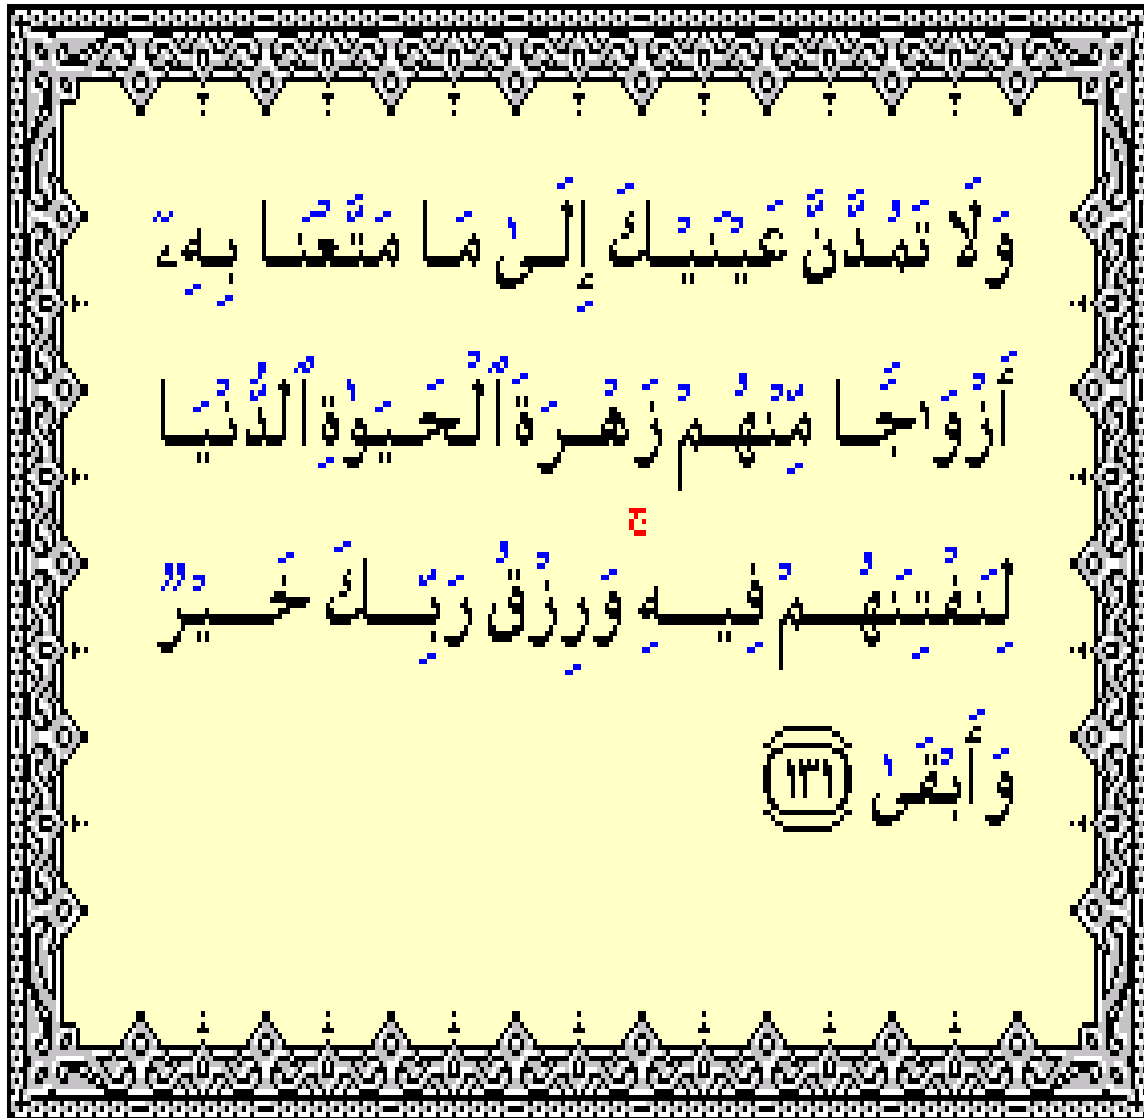 وَلَا تَمُدَّنَّ عَيْنَيْكَ إِلَىٰ مَا مَتَّعْنَا بِهِۦٓ
أَزْوَٰجًا مِّنْهُمْ زَهْرَةَ ٱلْحَيَوٰةِ ٱلدُّنْيَا
لِنَفْتِنَهُمْ فِيهِ ۚ وَرِزْقُ رَبِّكَ خَيْرٌ
وَأَبْقَىٰ ١٣١